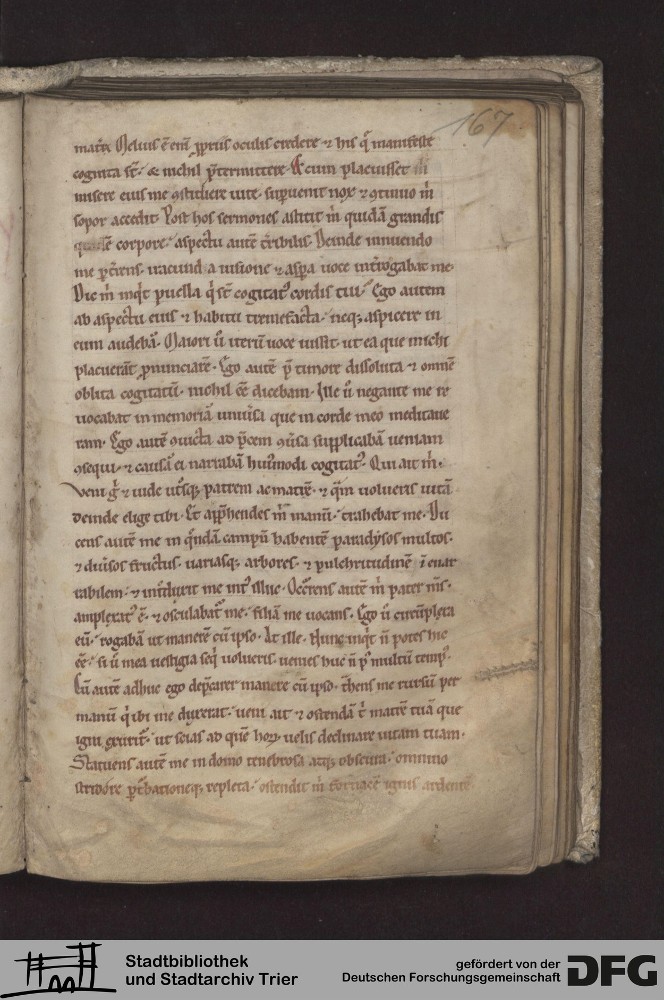 167
matrix. Melius ē eni͂ ꝓpriis oculis credere ⁊ his q̄ manifeste
cognita st̄. & nichil p̄termittere. Et cum placuisset
misere eius me ꝯstituere uite. suꝑuenit nox ⁊ ꝯtinuo m̄
sopor accedit. Post hos sermones astitit m̄ quidā grandis
corpore. aspectu autē tr̄ibilis. Deinde innuendo
me ꝑt̄rens. iracunda uisione ⁊ aspa uoce int̄rogabat me.
Dic m̄ inqt puella q̄ st̄ cogitatꝰ cordis tui. Ego autem
ab aspectu eius ⁊ habitu tremefacta. neqꝫ aspicere in
eum audebā. Maiori u̅ iterū uoce iussit. ut ea que michi
placuerāt ꝓnunciarē. Ego autē p̄ timore dissoluta ⁊ omniē
oblita cogitatū. nichil ēē dicebam. Ille u̅ negante me re
uocabat in memoriā uniu̅sa que in corde meo meditaue
ram. Ego autē ꝯuicta ad p̄cem ꝯu̅sa supplicabā ueniam
ꝯsequi. ⁊ causā ei narrabā huiꝰmodi cogitatꝰ. Qui ait m̄.
Veni g̊ ⁊ uide ut̄sqꝫ patrem ac matrē. ⁊ qm̄ uolueris uitā
deinde elige tibi. Et app̄hendes m̄ manū. trahebat me. Du
cens autē me in q̄ndā campū habentē paradysos multos.
⁊ diu̅sos fructus. uariasqꝫ arbores. ⁊ pulchritudinē īenar
rabilem. ⁊ int̄duxit me intꝰ illuc. Occr̄rens autē m̄ pater mꝰs.
amplexatꝰ ē. ⁊ osculabatꝰ me. filiā me uocans. Ego u̅ circūplexa
eū. rogabā ut manerē cū ipso. At ille. Nunc inqt n̄ potes hic
ēē. si u̅ mea uestigia seq̄ uolueris. uenies huc n̄ pꝰ multū tempꝰ.
Cū autē adhuc ego dep̄carer manere cū ipso. t̄hens me rursū per
manū q̄ ibi me duxerat. ueni ait ⁊ ostendā t̄ matrē tuā que
igni exuritꝰ. ut scias ad quē hoꝝ uelis declinare uitam tuam.
Statuens autē me in domo tenebrosa atqꝫ obscura. omnino
stridore ꝑt̄bationeqꝫ repleta. ostendit m̄ fornacē ignis ardentē.
Stadtbibliothek
und Stadtarchiv Trier
gefördert von der
Deutschen Forschungsgemeinschaft
DFG